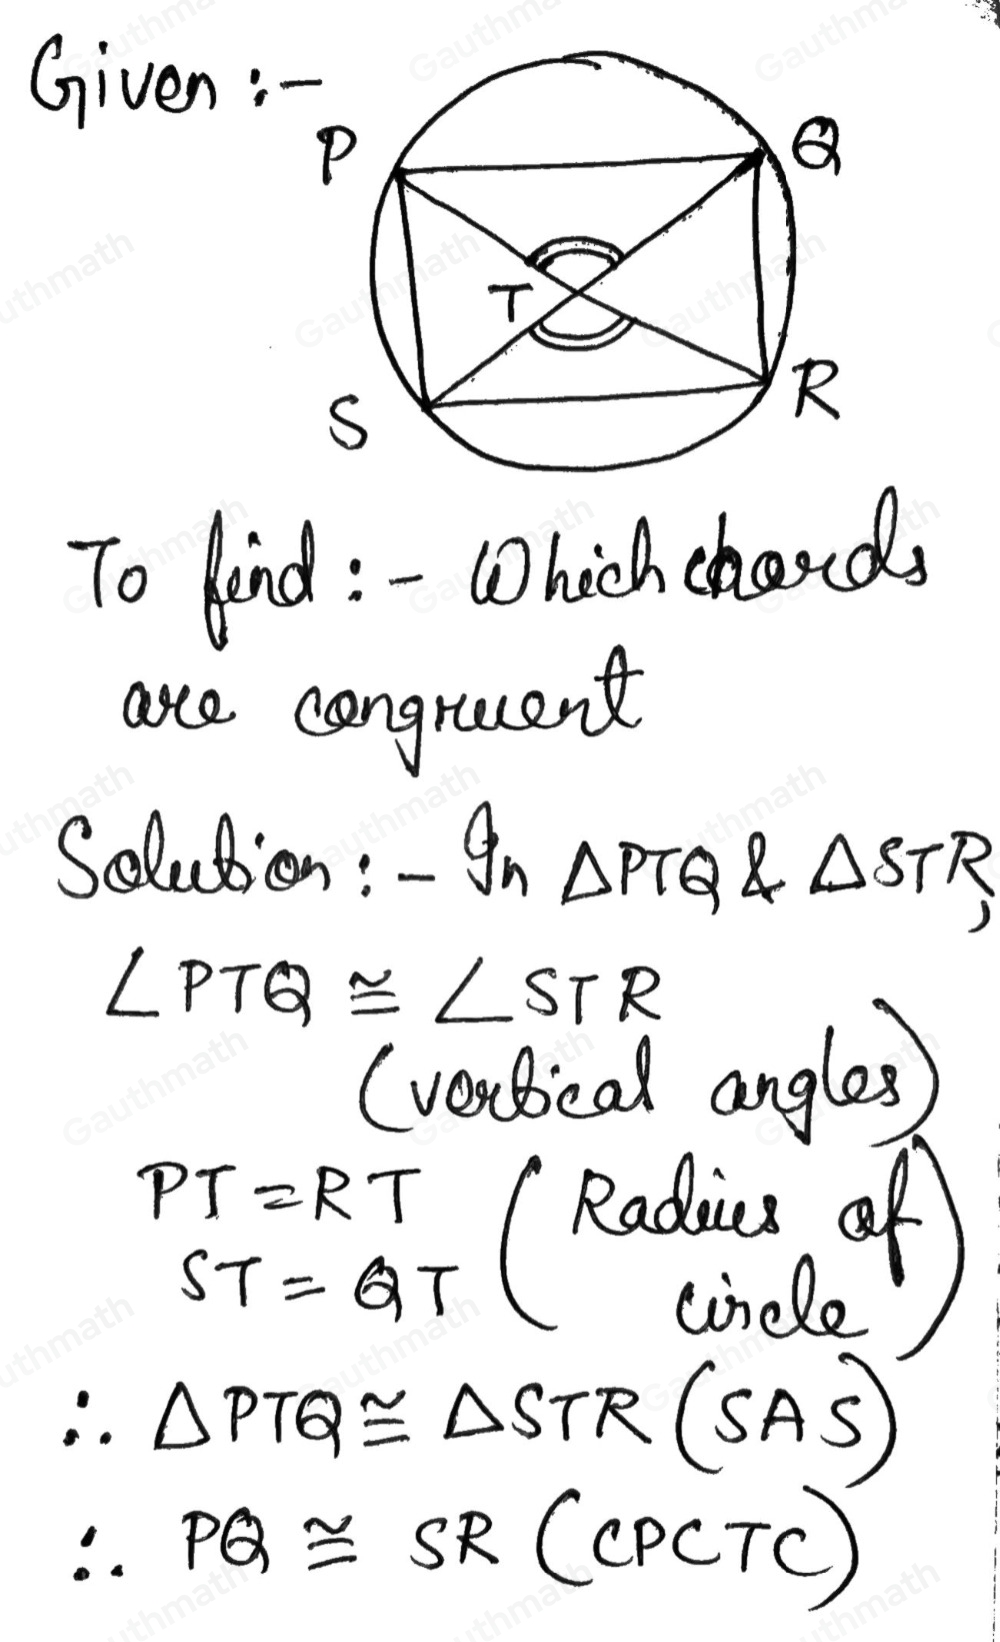 Given :-
P Q
T
S R
To find :- Which chords
are congruent
Solution :- In △PTQ & △STR,
∠PTQ ≅ ∠STR
(vertical angles)
PT = RT (Radius of
ST = QT circle)
∴ △PTQ ≅ △STR (SAS)
∴ PQ ≅ SR (CPCTC)
Gauthmath